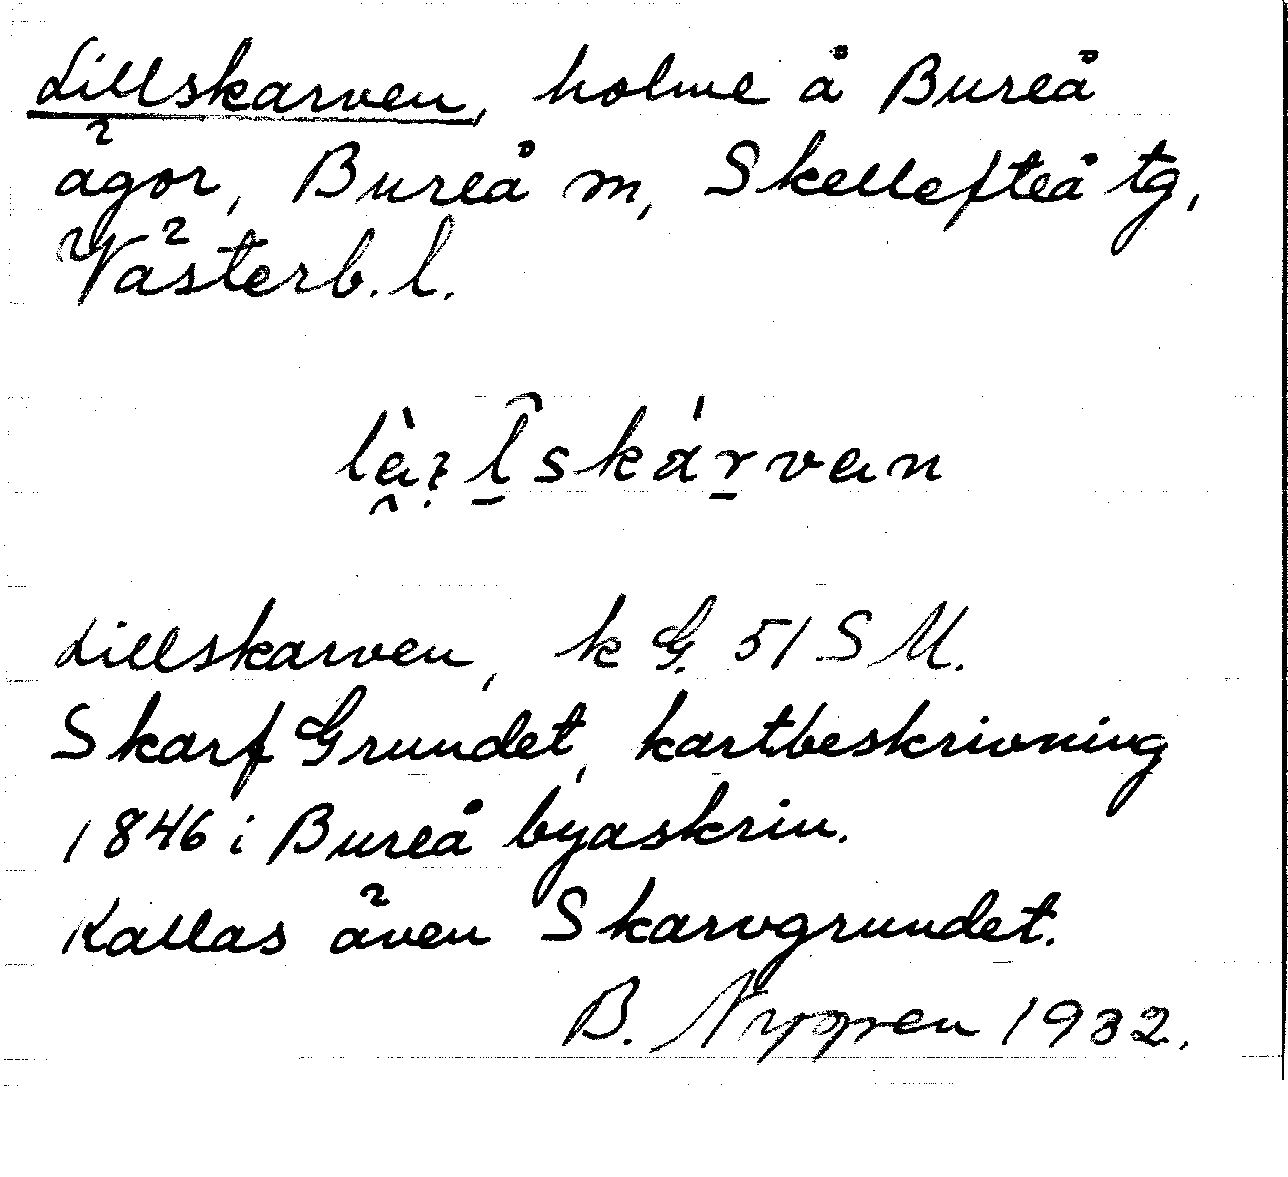 Lillskarven, holme å Bureå
ägor, Bureå m, Skellefteå tg,
Västerb. l.
Lillskarven, k G. 51 S M.
Skarf Grundet, kartbeskrivning
1846 i Bureå byaskrin.
Kallas även Skarvgrundet.
B. Nygren 1932.